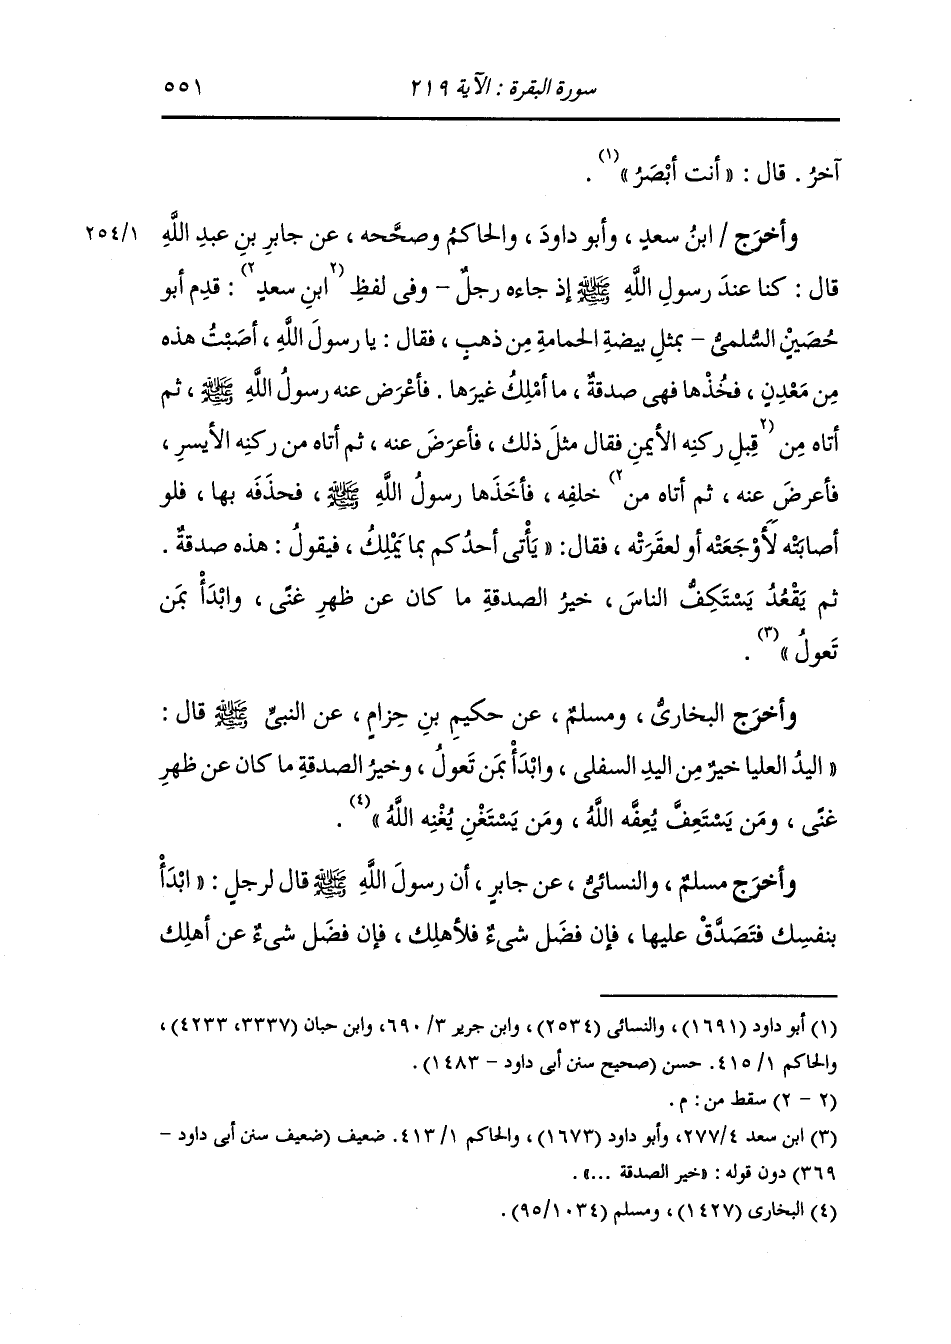 سورة البقرة : الآية ٢١٩ ٥٥١
آخرُ . قال : « أنت أبْصَرُ »(١) .
وأخرَج / ابنُ سعدٍ ، وأبو داودَ ، والحاكمُ وصحَّحه ، عن جابرِ بنِ عبدِ اللَّهِ ٢٥٤/١
قال : كنا عندَ رسولِ اللَّهِ ﷺ إذ جاءه رجلٌ – وفى لفظِ (٢ابنِ سعدٍ٢) : قدِم أبو
حُصَيْنٍ السُّلمىُّ – بمثلِ بيضةِ الحمامةِ مِن ذهبٍ ، فقال : يا رسولَ اللَّهِ ، أصَبْتُ هذه
مِن مَعْدِنٍ ، فخُذْها فهى صدقةٌ ، ما أمْلِكُ غيرَها . فأعْرَض عنه رسولُ اللَّهِ ﷺ ، ثم
أتاه مِن (٢قِبلِ ركنِه الأيمنِ فقال مثلَ ذلك ، فأعرَضَ عنه ، ثم أتاه من ركنِه الأيسرِ ،
فأعرضَ عنه ، ثم أتاه من٢) خلفِه ، فأخَذَها رسولُ اللَّهِ ﷺ ، فحذَفَه بها ، فلو
أصابَتْه لَأَوْجَعَتْه أو لعقَرَتْه ، فقال: « يَأْتى أحدُكم بما يَمْلِكُ ، فيقولُ : هذه صدقةٌ .
ثم يَقْعُدُ يَسْتَكِفُّ الناسَ ، خيرُ الصدقةِ ما كان عن ظهرِ غنًى ، وابْدَأْ بمَن
تَعولُ »(٣) .
وأخرَج البخارىُّ ، ومسلمٌ ، عن حكيمِ بنِ حِزامٍ ، عن النبىِّ ﷺ قال :
« اليدُ العليا خيرٌ مِن اليدِ السفلى ، وابْدَأْ بمَن تَعولُ ، وخيرُ الصدقةِ ما كان عن ظهرِ
غنًى ، ومَن يَسْتَعِفَّ يُعِفَّه اللَّهُ ، ومَن يَسْتَغْنِ يُغْنِه اللَّهُ »(٤) .
وأخرَج مسلمٌ ، والنسائىُّ ، عن جابرٍ ، أن رسولَ اللَّهِ ﷺ قال لرجلٍ : « ابْدَأْ
بنفسِك فتَصَدَّقْ عليها ، فإن فضَل شىءٌ فلأهلِك ، فإن فضَل شىءٌ عن أهلِك
(١) أبو داود (١٦٩١) ، والنسائى (٢٥٣٤) ، وابن جرير ٣/ ٦٩٠، وابن حبان (٣٣٣٧، ٤٢٣٣) ،
والحاكم ١/ ٤١٥. حسن (صحيح سنن أبى داود – ١٤٨٣) .
(٢ – ٢) سقط من : م .
(٣) ابن سعد ٢٧٧/٤، وأبو داود (١٦٧٣) ، والحاكم ١/ ٤١٣. ضعيف (ضعيف سنن أبى داود –
٣٦٩) دون قوله : «خير الصدقة ...» .
(٤) البخارى (١٤٢٧) ، ومسلم (٩٥/١٠٣٤) .